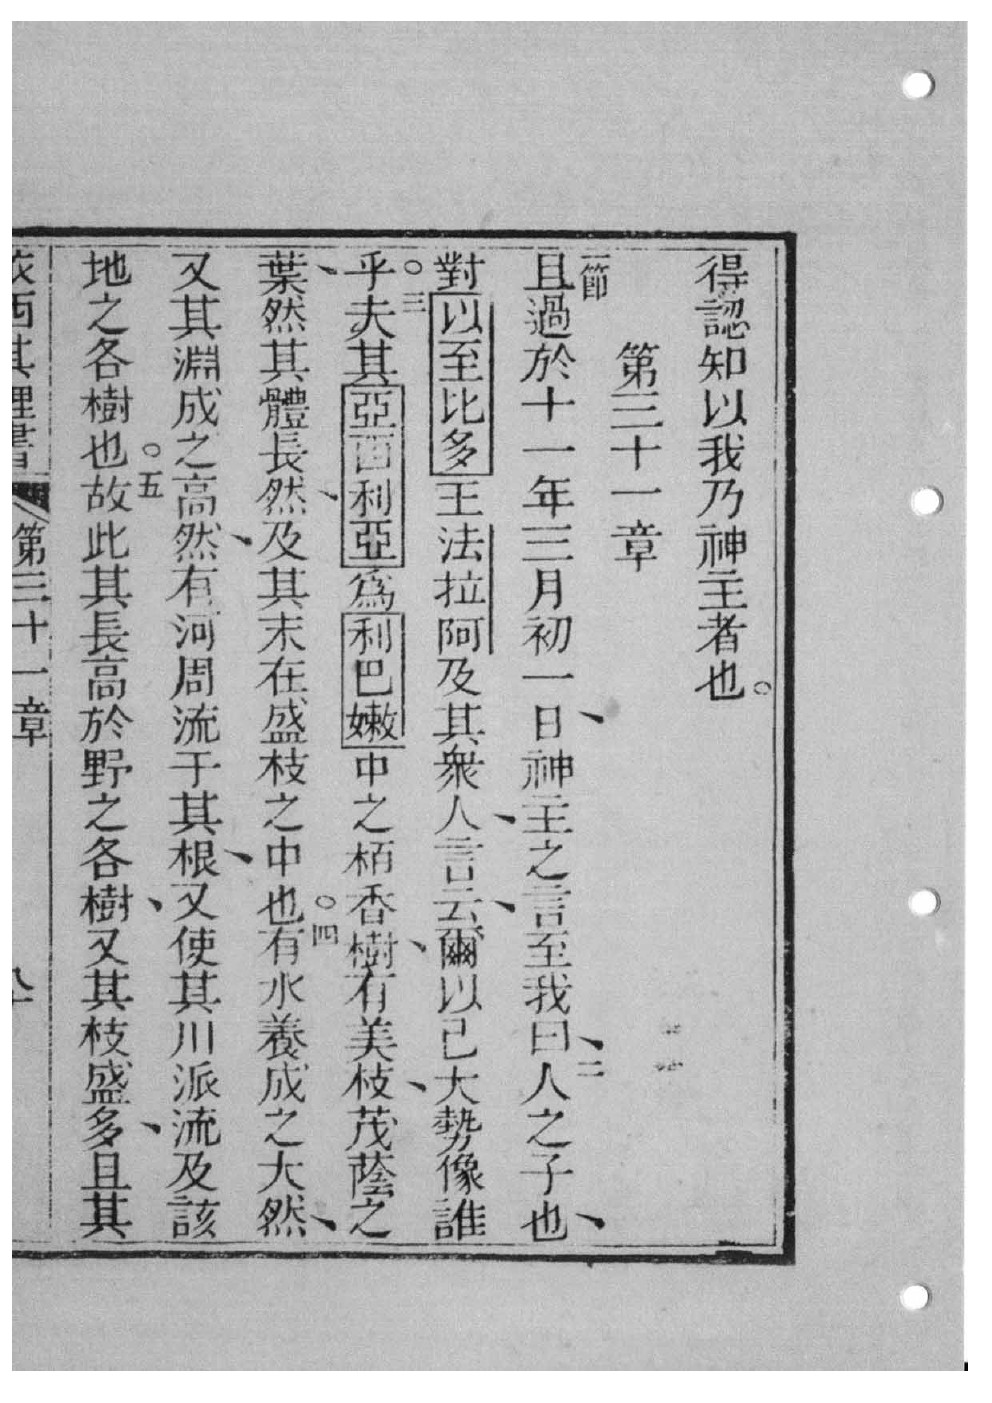 得認知以我乃神主者也。
第三十一章
一節且過於十一年三月初一日、神主之言至我曰、二人之子也、
對以至比多王法拉阿及其衆人、言云、爾以己大勢像誰
乎。三夫其亞西利亞爲利巴嫩中之栢香樹、有美枝、茂蔭之
葉、然其體長然、及其末在盛枝之中也。四有水養成之大然、
又其淵成之高然、有河周流于其根、又使其川派流及該
地之各樹也。五故此其長高於野之各樹、又其枝盛多、且其
西其理書 第三十一章